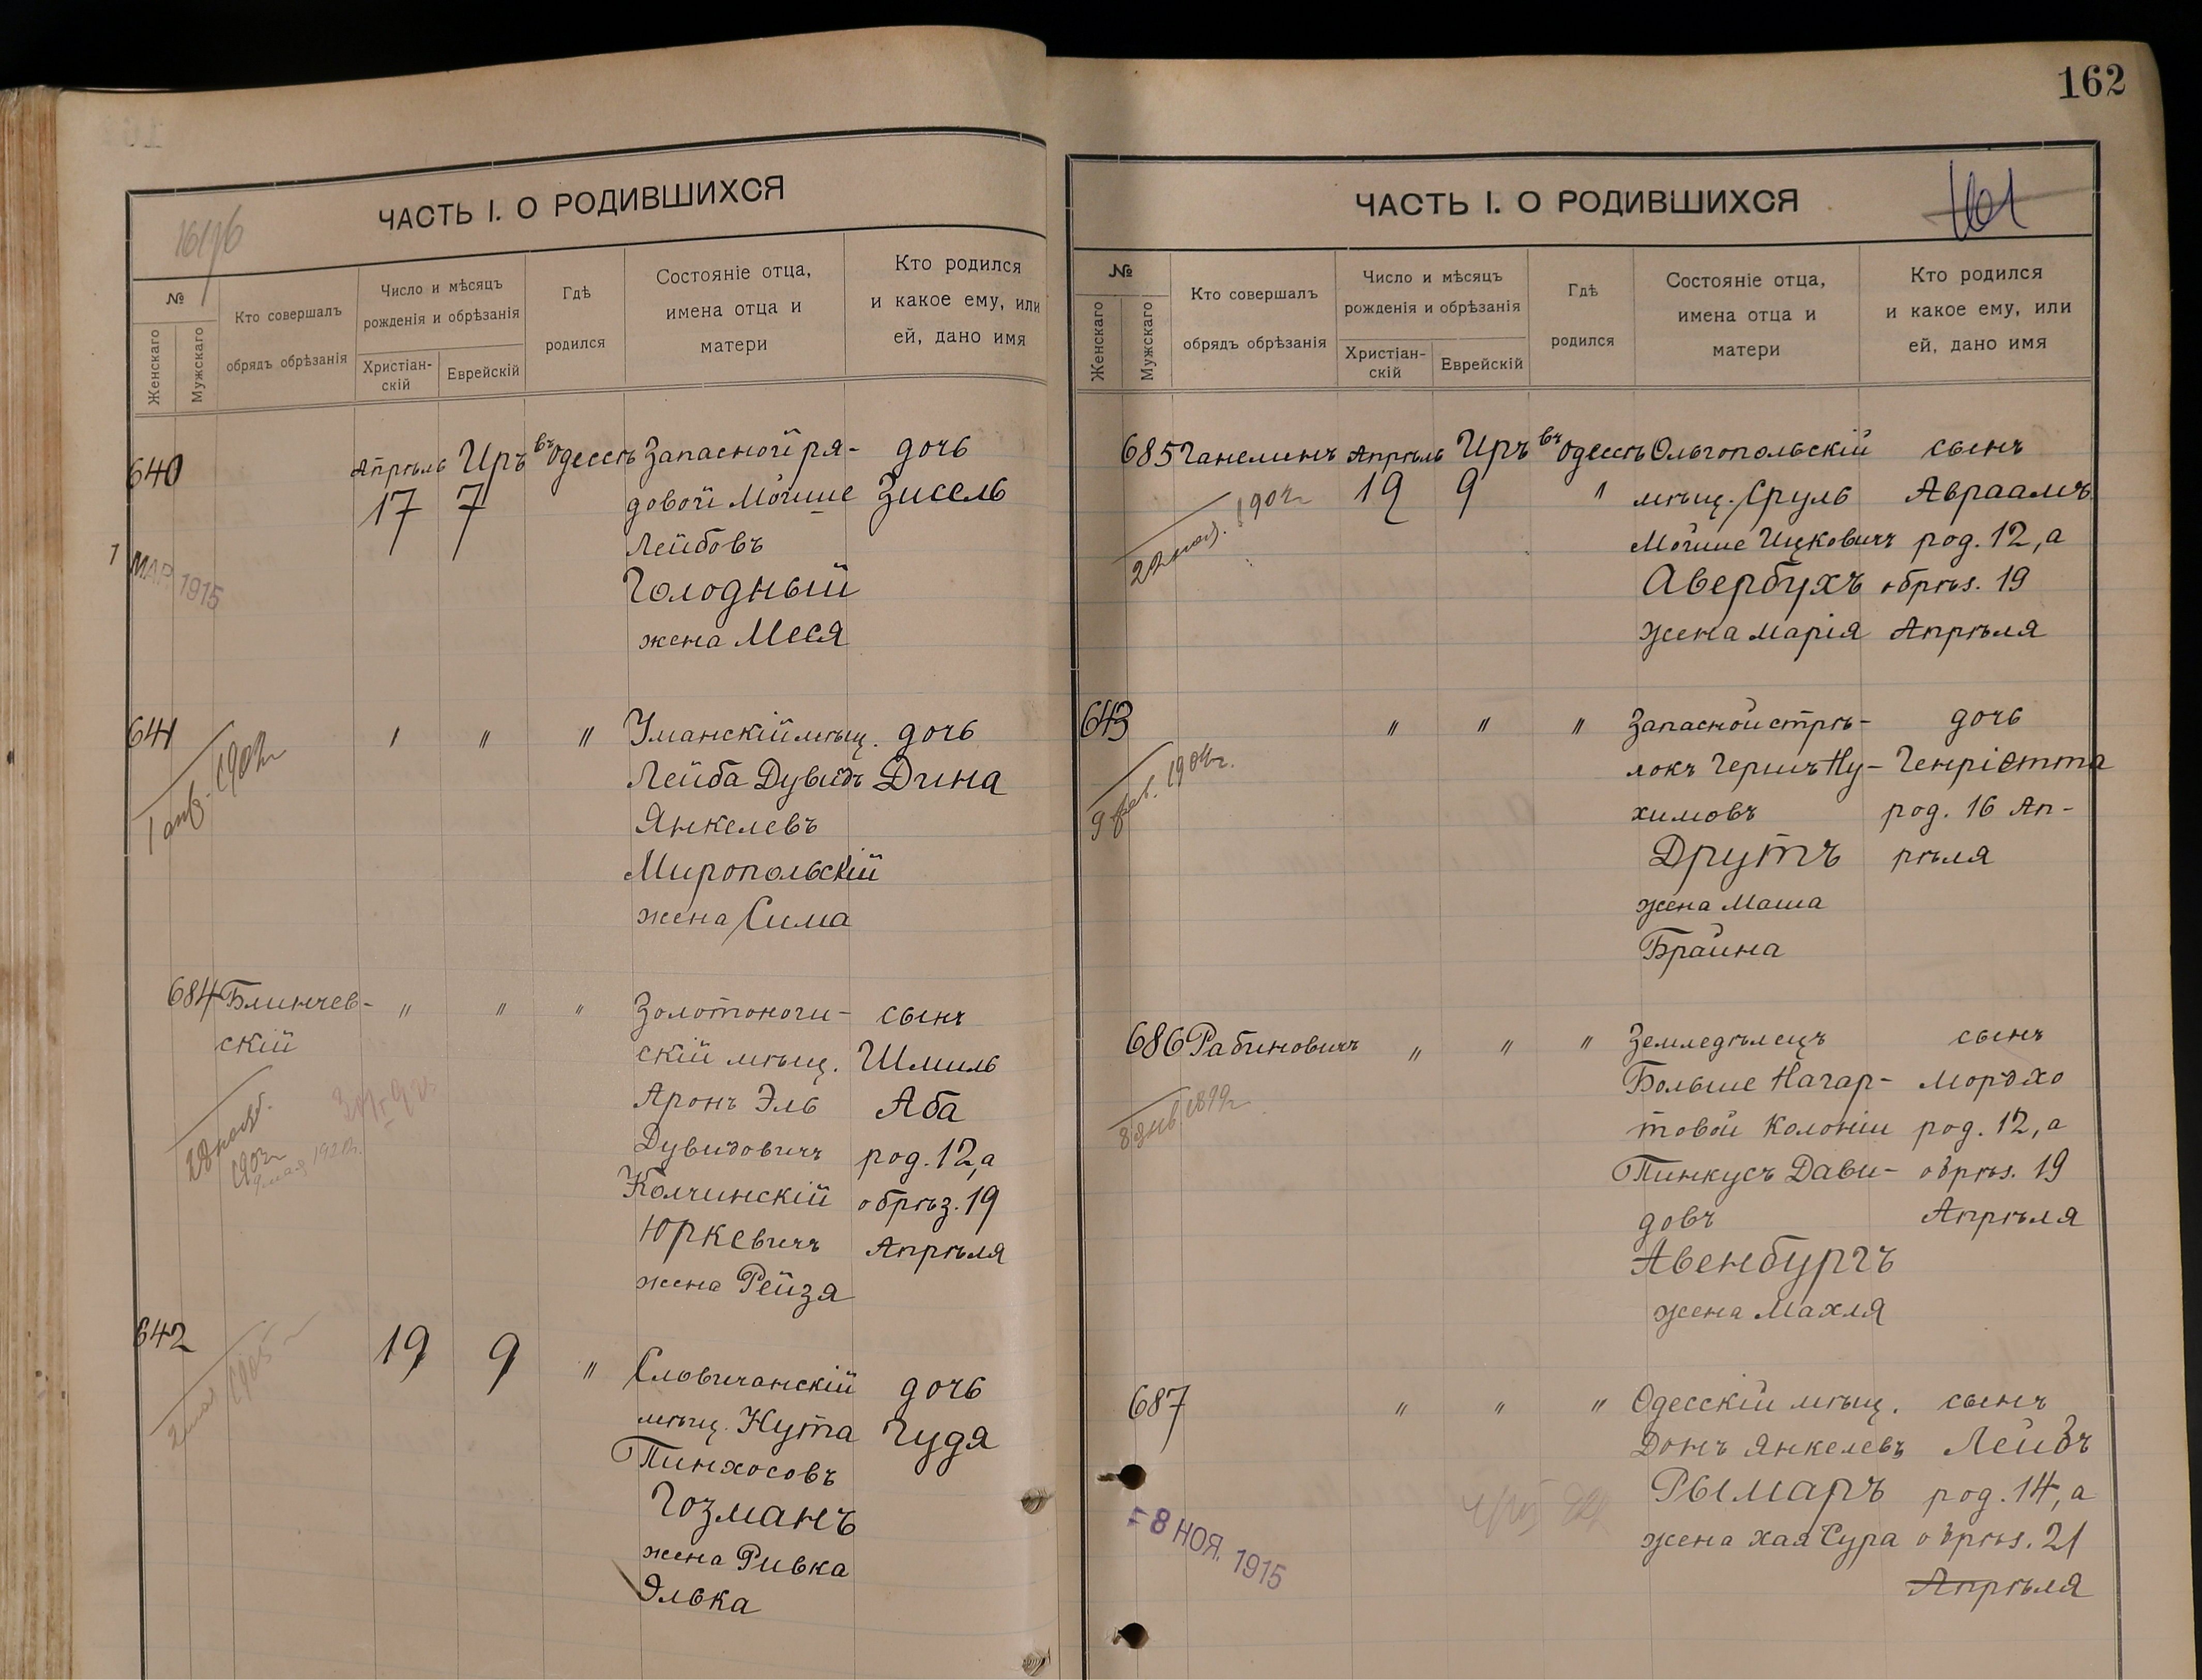 162
ЧАСТЬ I. О РОДИВШИХСЯ
№
Женскаго
Мужскаго
Кто совершалъ
обрядъ обрѣзанія
Число и мѣсяцъ
рожденія и обрѣзанія
Христіан-
скій
Еврейскій
Гдѣ
родился
Состояніе отца,
имена отца и
матери
Кто родился
и какое ему, или
ей, дано имя
640 Апрѣль Иръ въ Одессѣ Запасной ря- дочь
17 7 довой Мойше Зисель
Лейбовъ
Голодный
жена Меся
1 МАР 1915
641 " " " Уманскій мѣщ. дочь
Лейба Дувидъ Дина
Янкелевъ
Миропольскій
жена Сима
1902г
684 Блинчев- " " " Золотоноги- сынъ
скій скій мѣщ. Шмиль
Аронъ Эль Аба
Дувидовичъ род. 12, а
Колчинскій обрѣз. 19
Юркевичъ Апрѣля
жена Рейза
642 19 9 " Словичанскій дочь
мѣщ. Нута Гудя
Пинхосовъ
Гозманъ
жена Ривка
Элька
ЧАСТЬ I. О РОДИВШИХСЯ
161
№
Женскаго
Мужскаго
Кто совершалъ
обрядъ обрѣзанія
Число и мѣсяцъ
рожденія и обрѣзанія
Христіан-
скій
Еврейскій
Гдѣ
родился
Состояніе отца,
имена отца и
матери
Кто родился
и какое ему, или
ей, дано имя
685 Ганелинъ Апрѣль Иръ въ Одессѣ Ольгопольскій сынъ
19 9 " мѣщ. Сруль Авраамъ
Мойше Ицковичъ род. 12, а
Авербухъ обрѣз. 19
жена Марія Апрѣля
643 " " " Запасной стрѣ- дочь
локъ Гершъ Ну- Генріетта
химовъ род. 16 Ап-
Друтъ рѣля
жена Маша
Брайна
686 Рабиновичъ " " " Земледѣлецъ сынъ
Больше Нагар- Мордхо
товой Колоніи род. 12, а
Пинкусъ Дави- обрѣз. 19
довъ Апрѣля
Авенбургъ
жена Махля
687 " " " Одесскій мѣщ. сынъ
Донъ Янкелевъ Лейбъ
Рымаръ род. 14, а
жена Хая Сура обрѣз. 21
Апрѣля
8 НОЯ. 1915